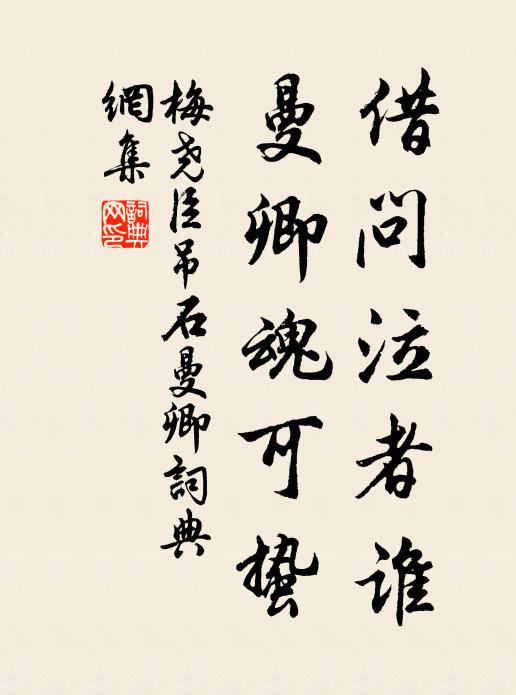 借问泣者谁
曼卿魂可蛰
梅尧臣吊石曼卿詞典
網集
詞典网印